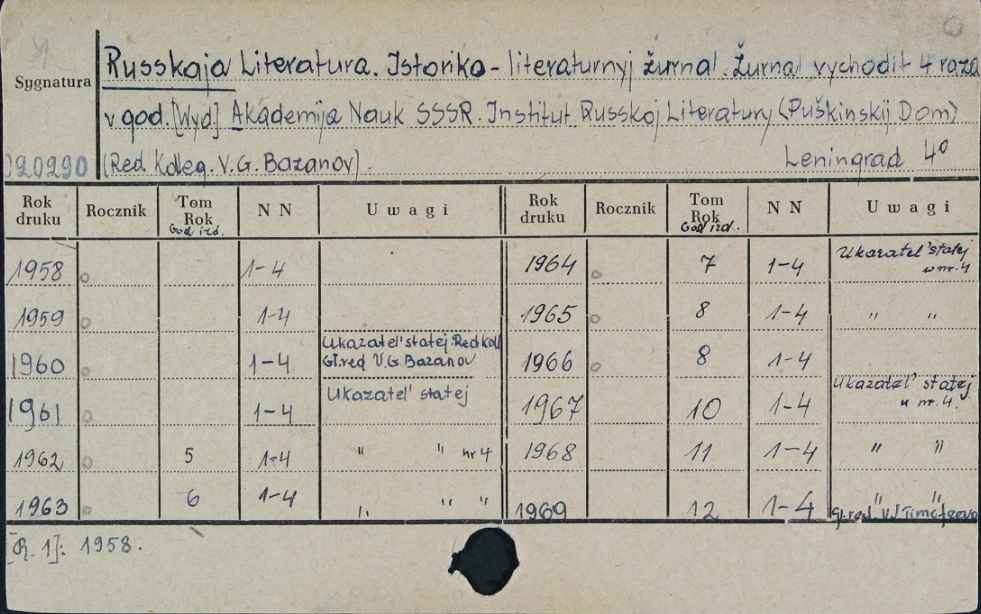 Russkaja Literatura. Istoriko-literaturnyj žurnal. Žurnal vychodit 4 raza
Sygnatura
v god. [Wyd] Akademija Nauk SSSR. Institut Russkoj Literatury (Puškinskij Dom)
020290 (Red Koleg. V.G. Bazanov). Leningrad 4°
Rok druku Rocznik Tom Rok God izd. NN Uwagi Rok druku Rocznik Tom Rok God izd. NN Uwagi
1958 1-4 1964 7 1-4 Ukazatel' statej w nr. 4
1959 1-4 1965 8 1-4 " "
1960 1-4 Ukazatel' statej. Red kol Gł.red V.G. Bazanov 1966 8 1-4
1961 1-4 Ukazatel' statej 1967 10 1-4 Ukazatel' statej w nr. 4.
1962 5 1-4 " " nr 4 1968 11 1-4 " "
1963 6 1-4 " " " 1969 12 1-4 " " gł.red. V.
[R. 1]: 1958.